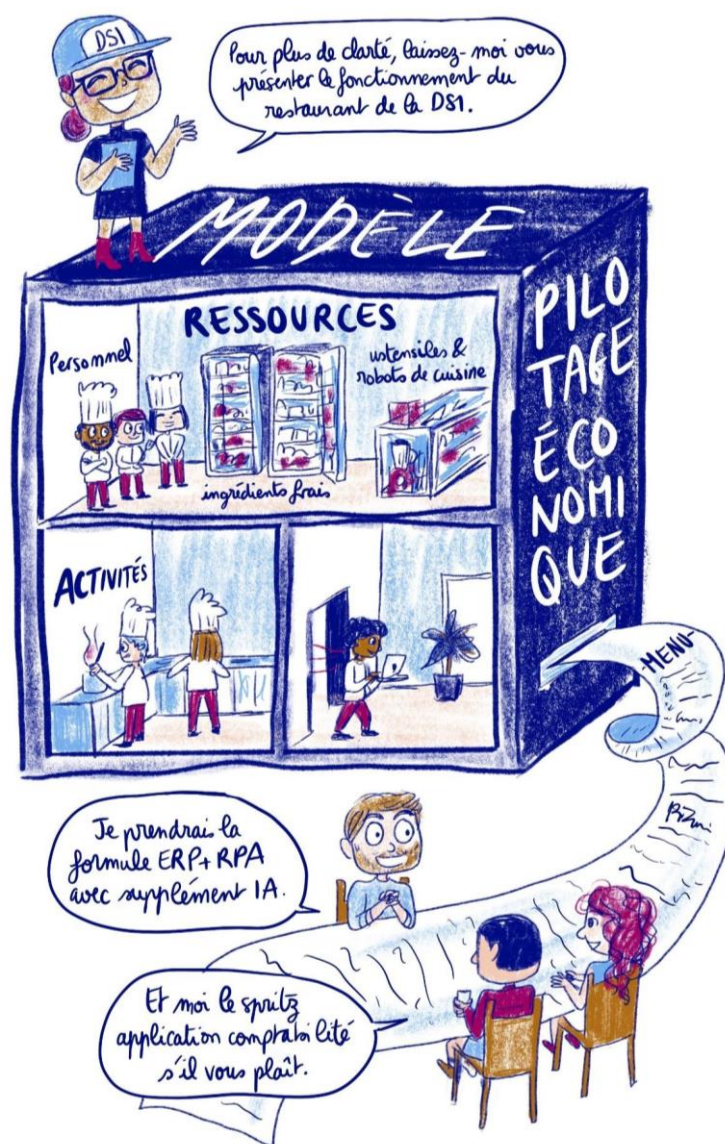 DSI
Pour plus de clarté, laissez-moi vous
présenter le fonctionnement du
restaurant de la DSI.
MODÈLE
PILO
TAGE
ÉCO
NOMI
QUE
RESSOURCES
Personnel
ustensiles &
robots de cuisine
ingrédients frais
ACTIVITÉS
-MENU-
Je prendrai la
formule ERP+RPA
avec supplément IA.
Et moi le spritz
application comptabilité
s'il vous plaît.